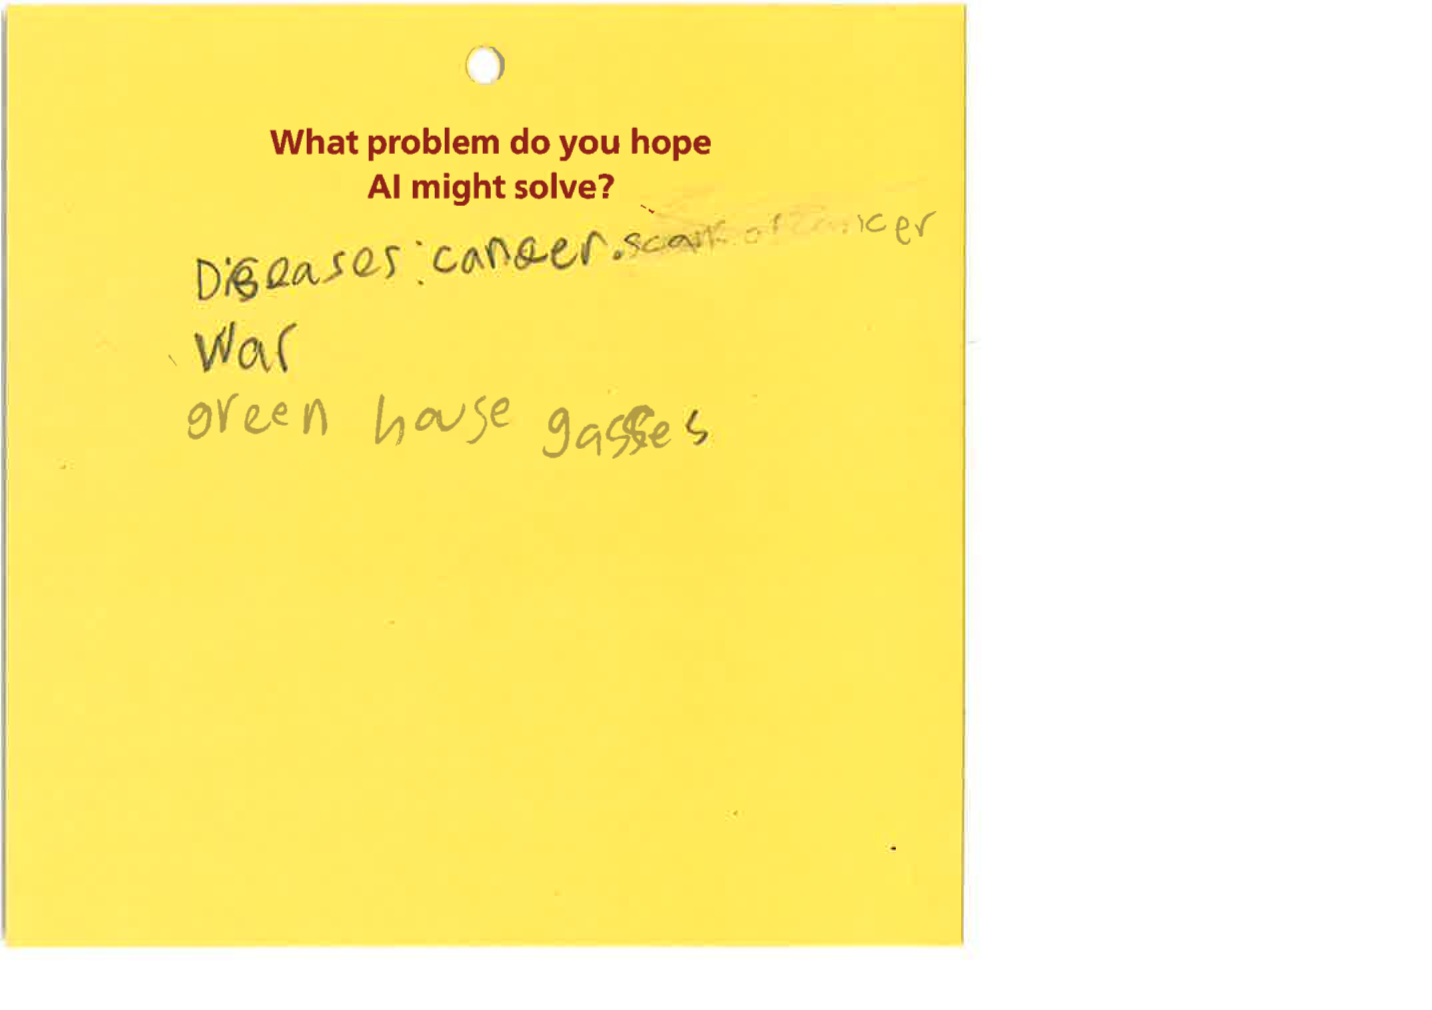 What problem do you hope
AI might solve?
Diseases: cancer.
War
green house gasses